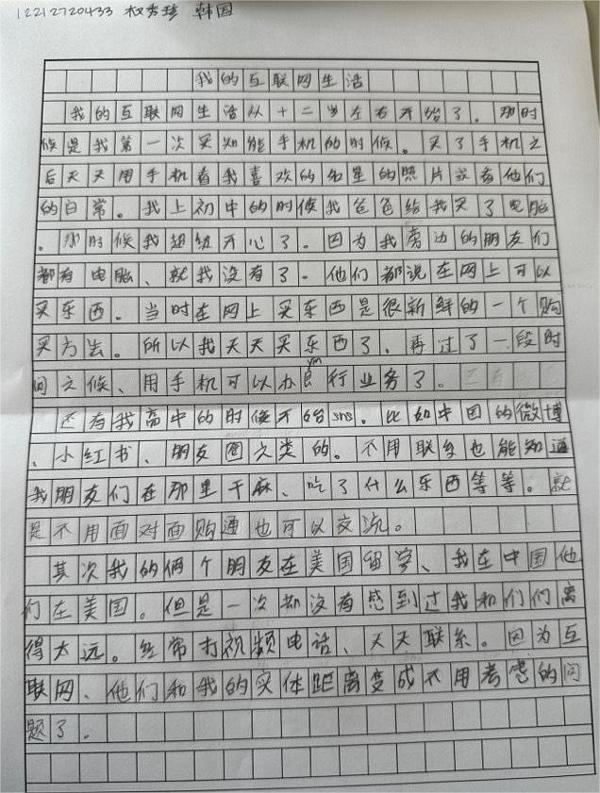 12212720433 权秀珍 韩国
我的互联网生活
我的互联网生活从十二岁左右开始了。那时
候是我第一次买知能手机的时候。买了手机之
后天天用手机看我喜欢的名星的照片或看他们
的日常。我上初中的时候我爸爸给我买了电脑
。那时候我超级开心了。因为我旁边的朋友们
都有电脑、就我没有了。他们都说在网上可以
买东西。当时在网上买东西是很新鲜的一个购
买方法。所以我天天买东西了、再过了一段时
间之候、用手机可以办良行业务了。
还有我高中的时候开始sns。比如中国的微博
、小红书、朋友圈之类的。不用联系也能知道
我朋友们在那里干麻、吃了什么东西等等。就
是不用面对面购通也可以交流。
其次我的俩个朋友在美国留学、我在中国他
们在美国。但是一次却没有感到过我和们们离
得太远。经常打视频电话、天天联系。因为互
联网、他们和我的实体距离变成不用考虑的问
题了。